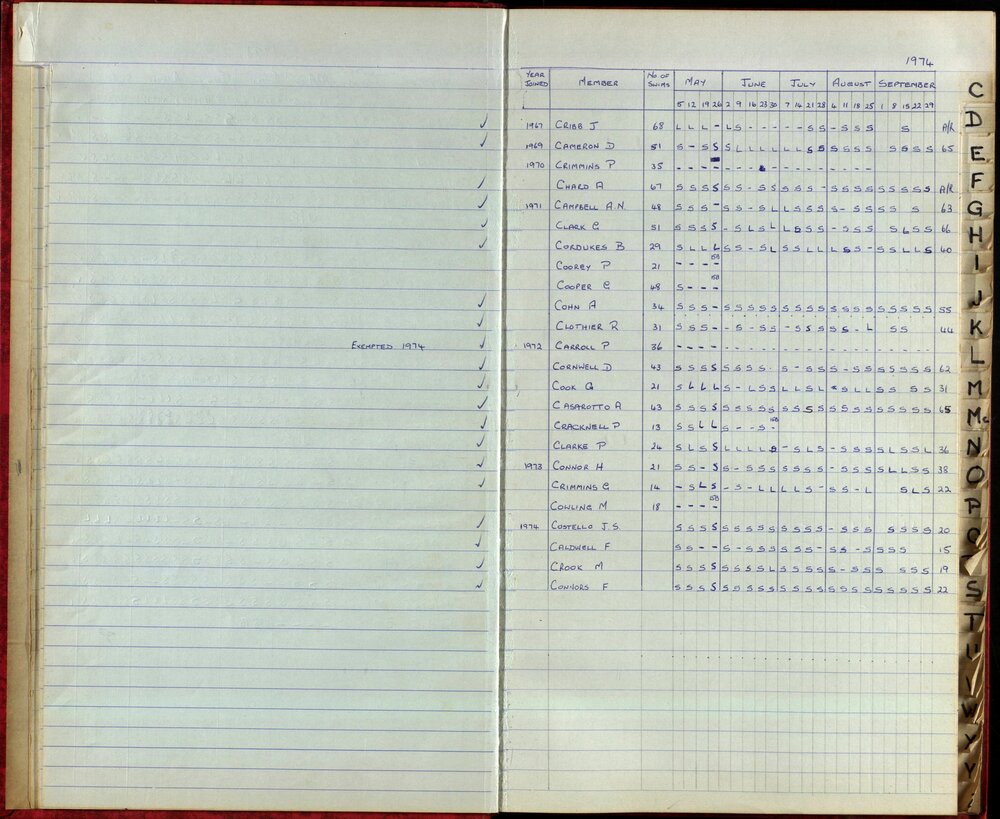 1974
YEAR JOINED MEMBER No OF SWIMS MAY JUNE JULY AUGUST SEPTEMBER
5 12 19 26 2 9 16 23 30 7 14 21 28 4 11 18 25 1 8 15 22 29
✓ 1967 CRIBB J 68 L L L - L S - - - - - S S - S S S S A/R
✓ 1969 CAMERON D 51 S - S S S L L L L L L S S S S S S S S S S 65
1970 CRIMMINS P 35
✓ CHARD A 67 S S S S S S - S S S S S - S S S S S S S S S A/R
✓ 1971 CAMPBELL A.N. 48 S S S - S S - S L L S S S S - S S S S S 63
✓ CLARK G 51 S S S S - S L S L L S S S - - S S S L S S 66
✓ CORDUKES B 29 S L L L S S - S L S S L L L S S - S S L L S 40
COOREY P 21 - - - -
COOPER G 48 S - - -
✓ COHN A 34 S S S - S S S S S S S S S S S S S S S S S S 55
✓ CLOTHIER R 31 S S S - - S - S S - S S S S S - L S S 44
EXEMPTED 1974 ✓ 1972 CARROLL P 36 - - - - - - - - - - - - - - - - - - - - - -
✓ CORNWELL D 43 S S S S S S S S S - S S S - S S S S S S S 62
✓ COOK G 21 S L L L S - L S S L L S L S L L S S S S 31
✓ CASAROTTO A 43 S S S S S S S S S S S S S S S S S S S S S S 65
✓ CRACKNELL P 13 S S L L S - - S -
✓ CLARKE P 24 S L S S L L L L S - S L S - S S S S L S S L 36
✓ 1973 CONNOR H 21 S S - S S - S S S S S S S - S S S S L L S S 38
✓ CRIMMINS G 14 - S L S - S - L L L L S - S S - L S L S 22
COWLING M 18 - - - -
✓ 1974 COSTELLO J.S. S S S S S S S S S S S S S - S S S S S S S 20
✓ CALDWELL F S S - - S - S S S S S S - S S - S S S S 15
✓ CROOK M S S S S S S S S L S S S S S - S S S S S S 19
✓ CONNORS F S S S S S S S S S S S S S S S S S S S S S S 22
C
D
E
F
G
H
I
J
K
L
M
Mc
N
O
P
Q
S
T
U
W
X
Y